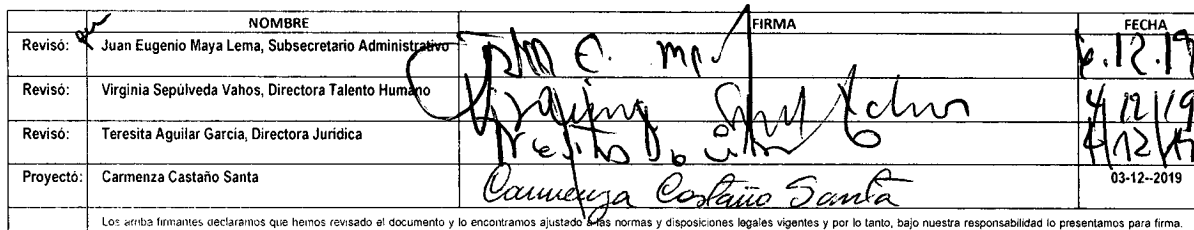 NOMBRE FIRMA FECHA
Revisó: Juan Eugenio Maya Lema, Subsecretario Administrativo 6.12.19
Revisó: Virginia Sepúlveda Vahos, Directora Talento Humano 4/12/19
Revisó: Teresita Aguilar García, Directora Jurídica
Proyectó: Carmenza Castaño Santa Carmenza Castaño Santa 03-12--2019
Los arriba firmantes declaramos que hemos revisado el documento y lo encontramos ajustado a las normas y disposiciones legales vigentes y por lo tanto, bajo nuestra responsabilidad lo presentamos para firma.